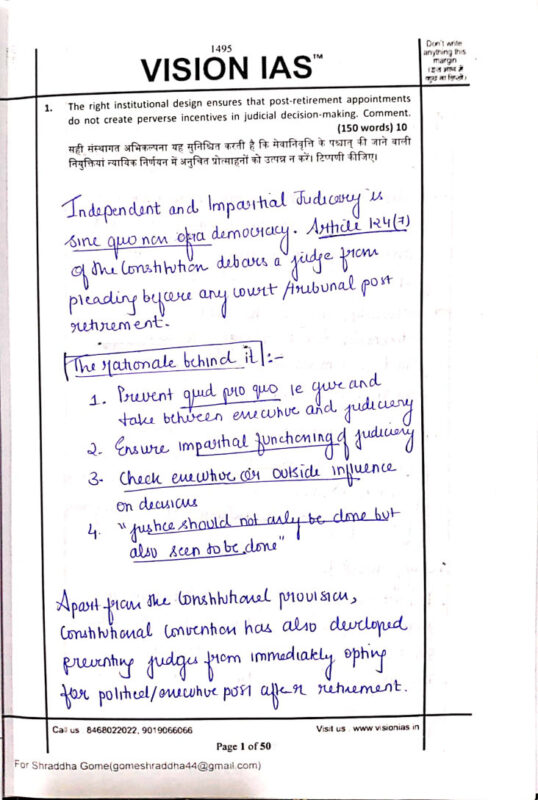 1495
VISION IAS™
Don't write
anything this
margin
1. The right institutional design ensures that post-retirement appointments
do not create perverse incentives in judicial decision-making. Comment.
(150 words) 10
सही संस्थागत अभिकल्पना यह सुनिश्चित करती है कि सेवानिवृत्ति के पश्चात् की जाने वाली
नियुक्तियां न्यायिक निर्णयन में अनुचित प्रोत्साहनों को उत्पन्न न करें। टिप्पणी कीजिए।
Independent and Impartial Judiciary is
sine quo non of a democracy. Article 124(7)
of the Constitution debars a judge from
pleading before any court /tribunal post
retirement.
The rationale behind it :-
1. Prevent quid pro quo ie give and
take between executive and judiciary
2. Ensure impartial functioning of judiciary
3. Check executive or outside influence
on decisions
4. "Justice should not only be done but
also seen to be done"
Apart from the Constitutional provision,
Constitutional Convention has also developed
preventing judges from immediately opting
for political/executive post after retirement.
Call us 8468022022, 9019066066
Visit us www.visionias.in
Page 1 of 50
For Shraddha Gome(gomeshraddha44@gmail.com)